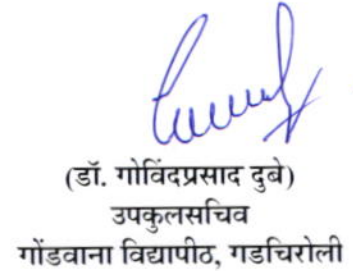 (डॉ. गोविंदप्रसाद दुबे)
उपकुलसचिव
गोंडवाना विद्यापीठ, गडचिरोली